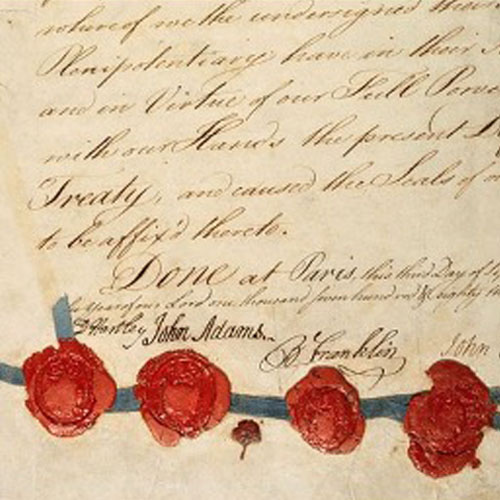 of we the undersigned their
Plenipotentiary have in their
and in Virtue of our Full
with our Hands the present
Treaty, and caused the Seals of
to be affix'd thereto.
Done at Paris, this third Day of
Year of our Lord one thousand seven hundred & eighty
D Hartley John Adams. B Franklin John